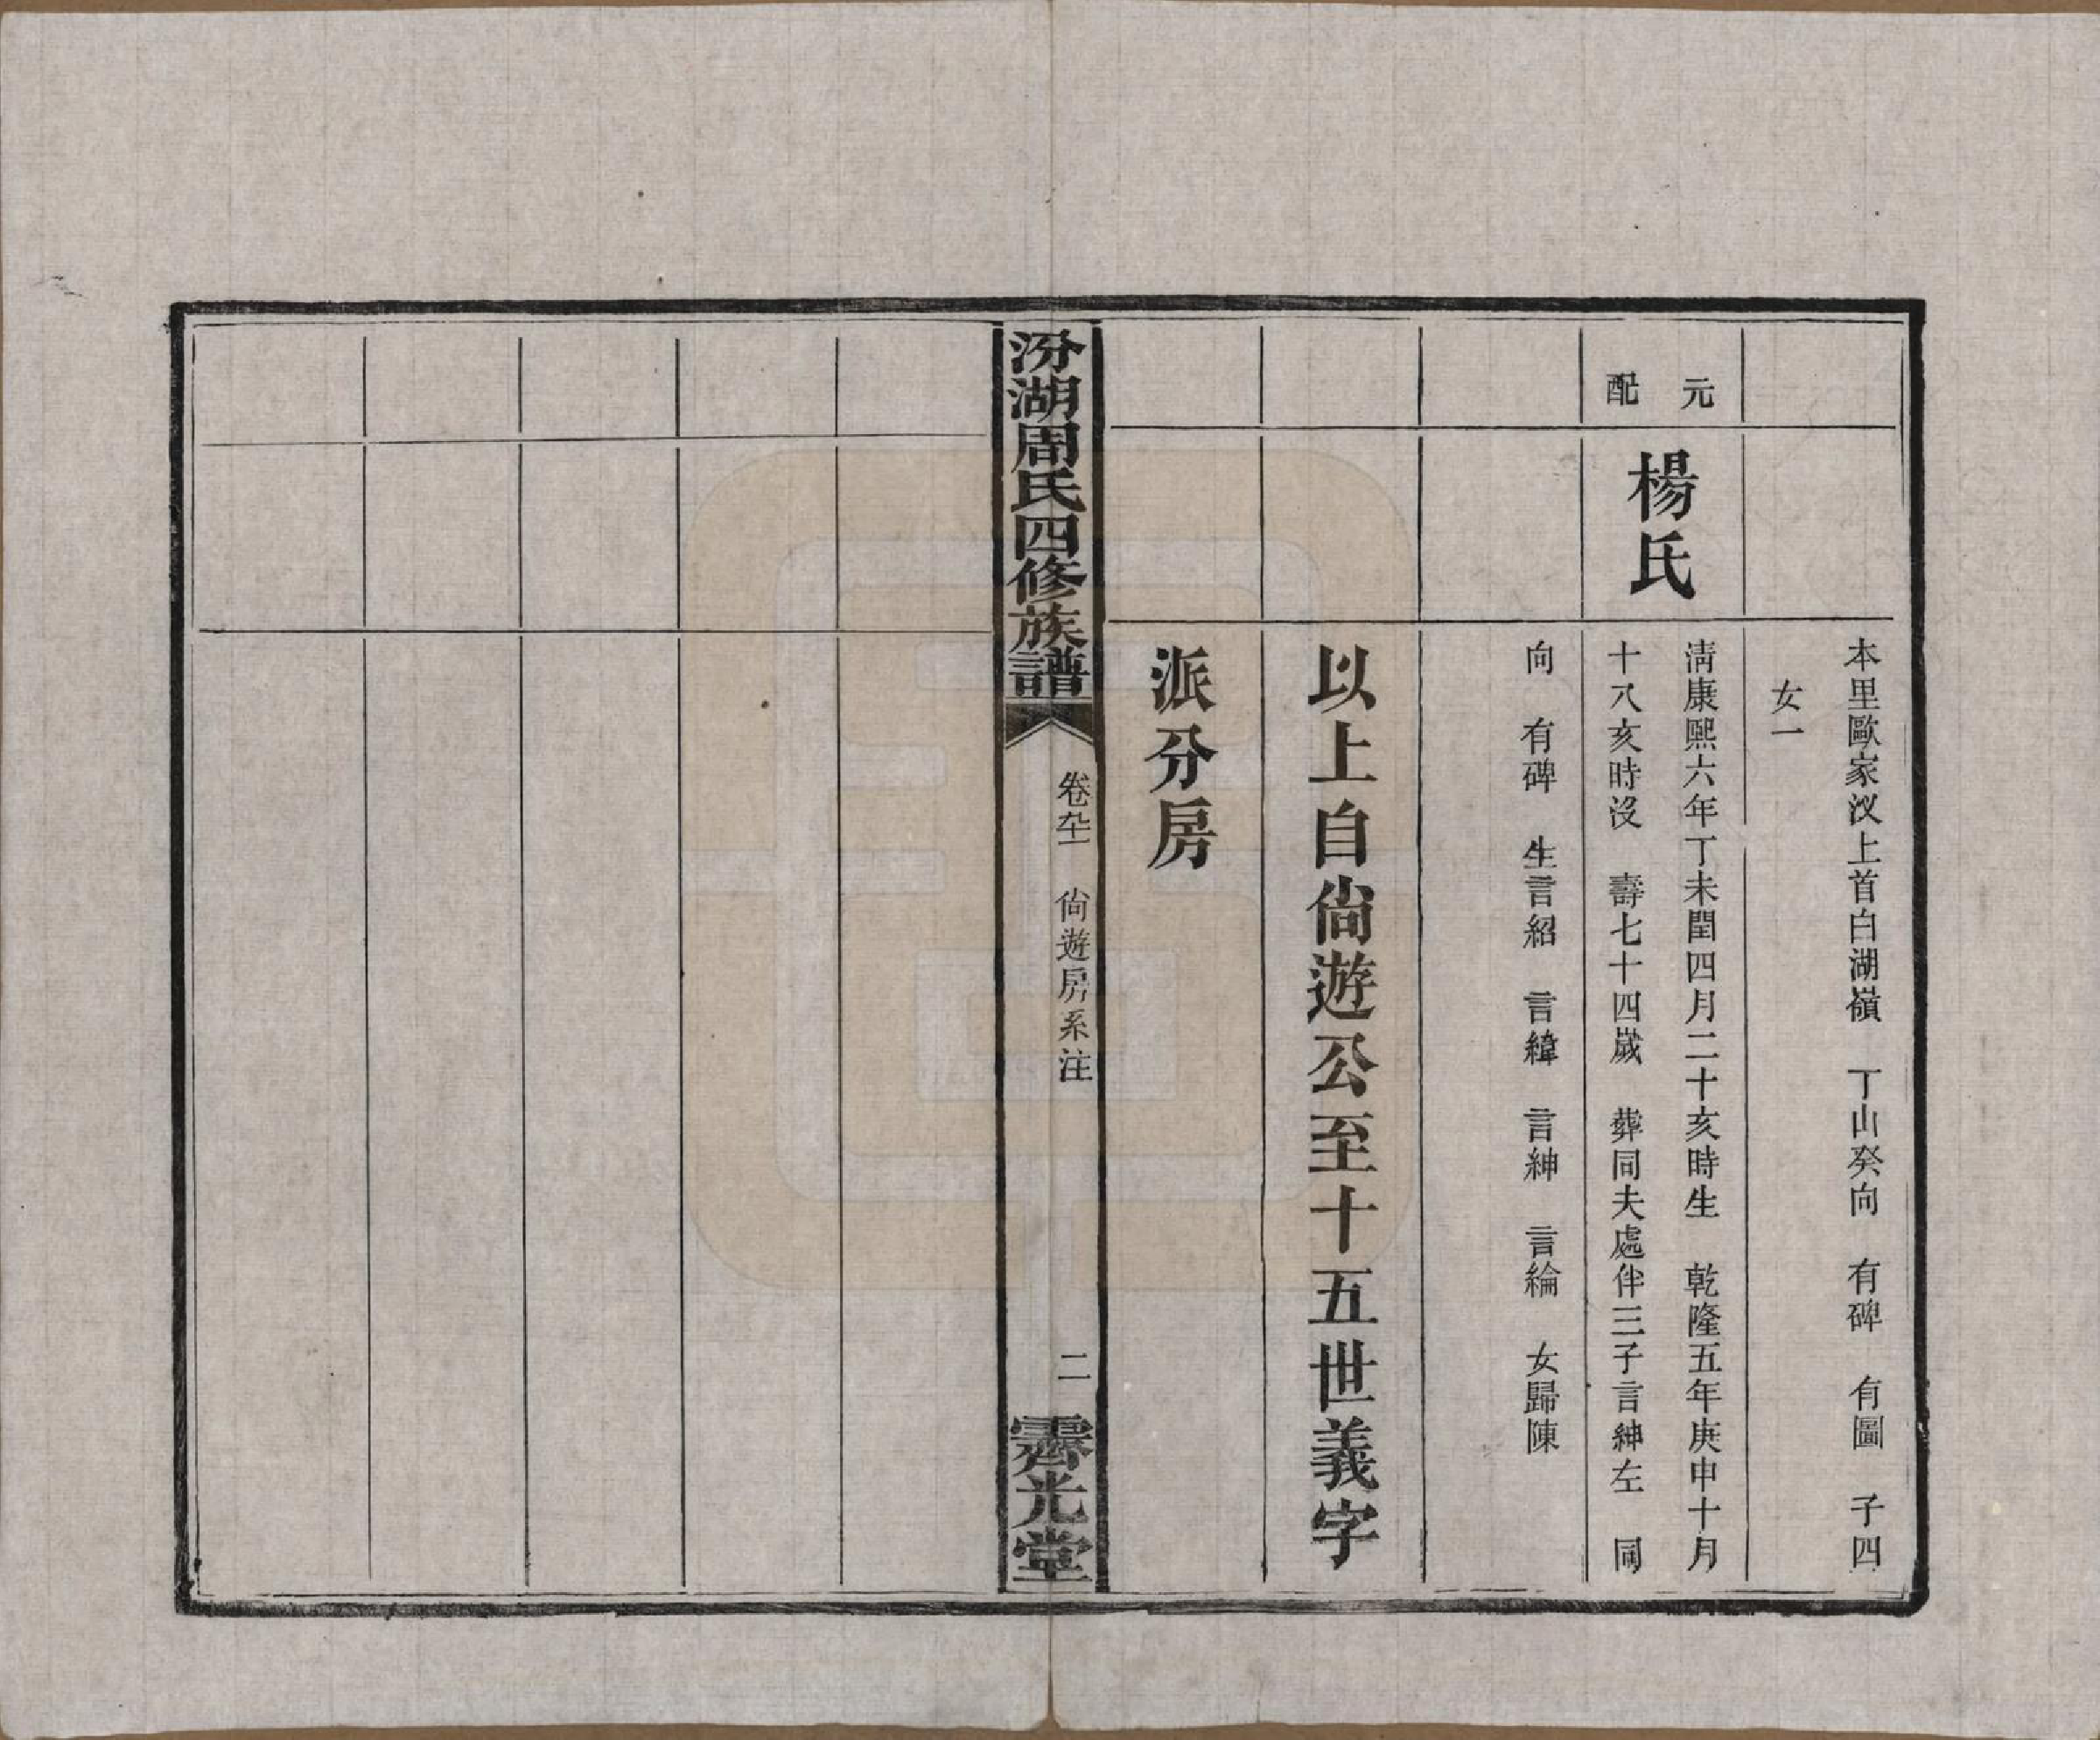 本里歐家汊上首白湖嶺　丁山癸向　有碑　有圖　子四
女一
元配
楊氏
淸康熙六年丁未閏四月二十亥時生　乾隆五年庚申十月
十八亥時沒　壽七十四歲　葬同夫處伴三子言紳左　同
向　有碑　生言紹　言緯　言紳　言綸　女歸陳
以上自尙遊公至十五世義字
派分房
汾湖周氏四修族譜
卷　尙遊房系注
二
霽光堂